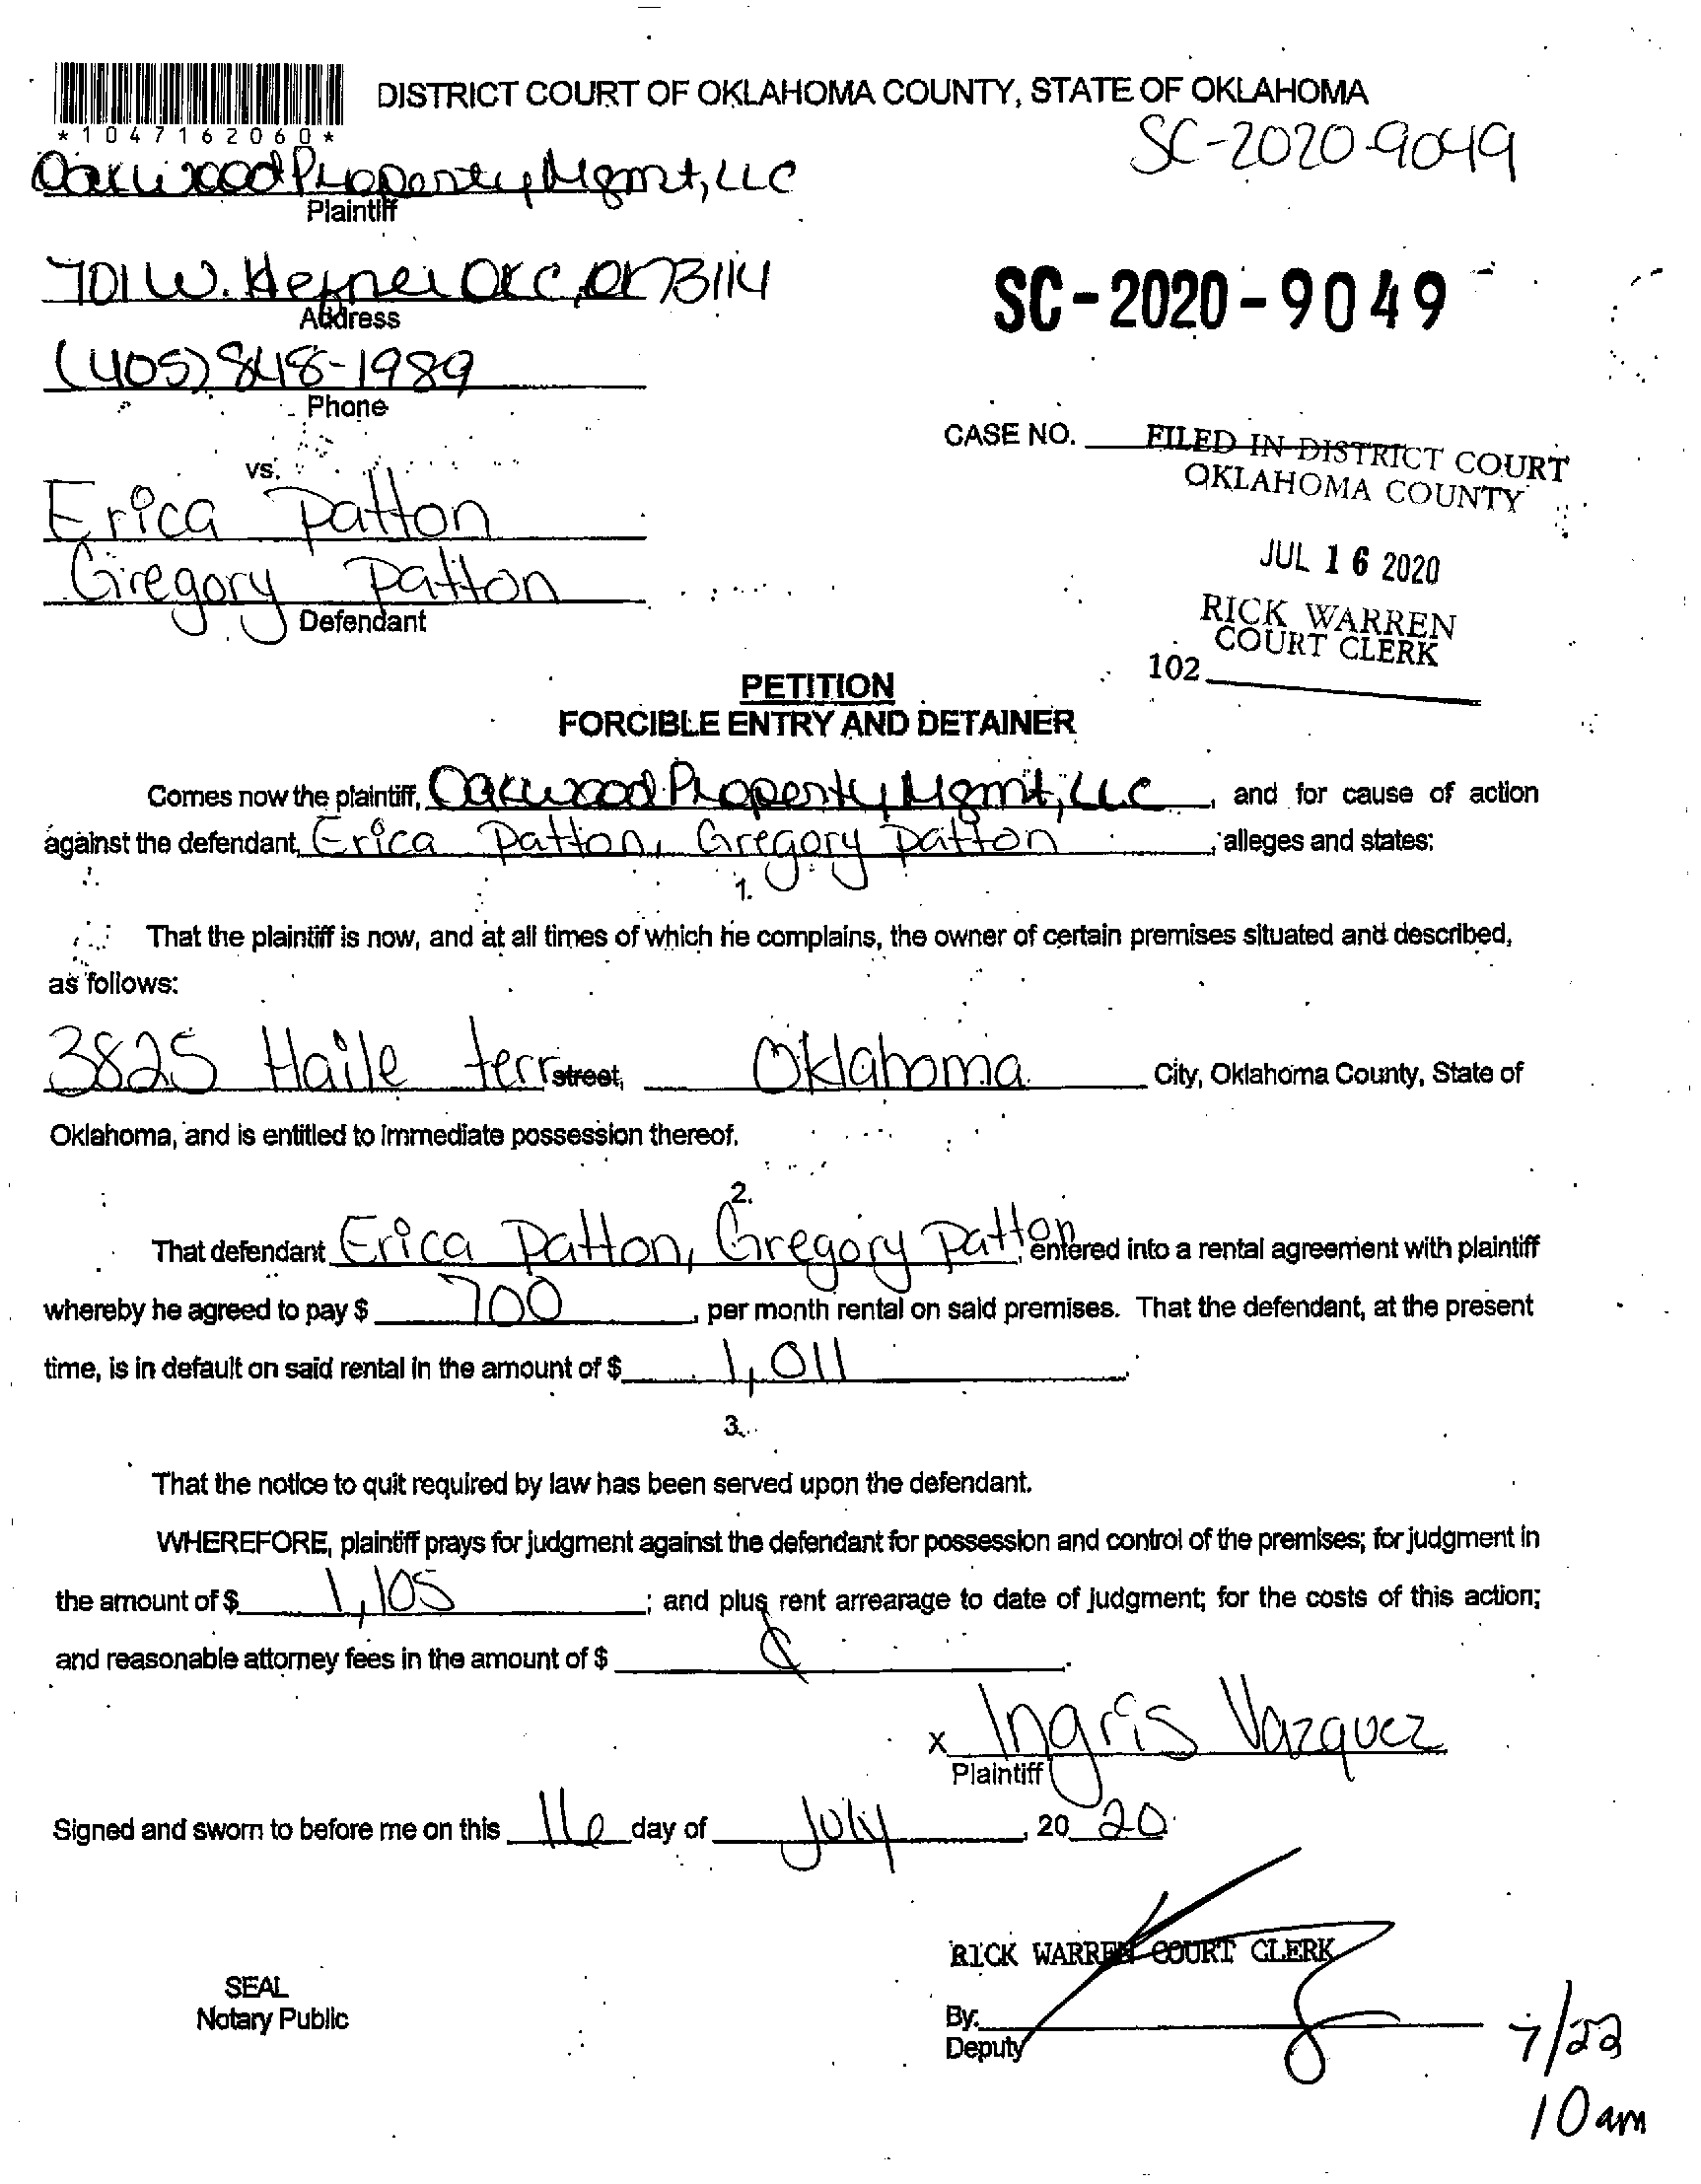 DISTRICT COURT OF OKLAHOMA COUNTY, STATE OF OKLAHOMA
*1047162060*
SC-2020-9049
Oakwood Property Mgmt, LLC
Plaintiff
701 W. Hefner OKC, OK 73114
Address
SC-2020-9049
(405) 848-1989
Phone
CASE NO.
FILED IN DISTRICT COURT
OKLAHOMA COUNTY
vs.
Erica Patton
Gregory Patton
Defendant
JUL 16 2020
RICK WARREN
COURT CLERK
102
PETITION
FORCIBLE ENTRY AND DETAINER
Comes now the plaintiff, Oakwood Property Mgmt, LLC, and for cause of action
against the defendant, Erica Patton, Gregory Patton, alleges and states:
1.
That the plaintiff is now, and at all times of which he complains, the owner of certain premises situated and described,
as follows:
3825 Haile terr street, Oklahoma City, Oklahoma County, State of
Oklahoma, and is entitled to immediate possession thereof.
2.
That defendant Erica Patton, Gregory Patton, entered into a rental agreement with plaintiff
whereby he agreed to pay $ 700, per month rental on said premises. That the defendant, at the present
time, is in default on said rental in the amount of $ 1,011.
3.
That the notice to quit required by law has been served upon the defendant.
WHEREFORE, plaintiff prays for judgment against the defendant for possession and control of the premises; for judgment in
the amount of $ 1,105; and plus rent arrearage to date of judgment; for the costs of this action;
and reasonable attorney fees in the amount of $
x Ingris Vazquez
Plaintiff
Signed and sworn to before me on this 16 day of July, 20 20
RICK WARREN COURT CLERK
SEAL
Notary Public
By:
Deputy
7/22
10 am